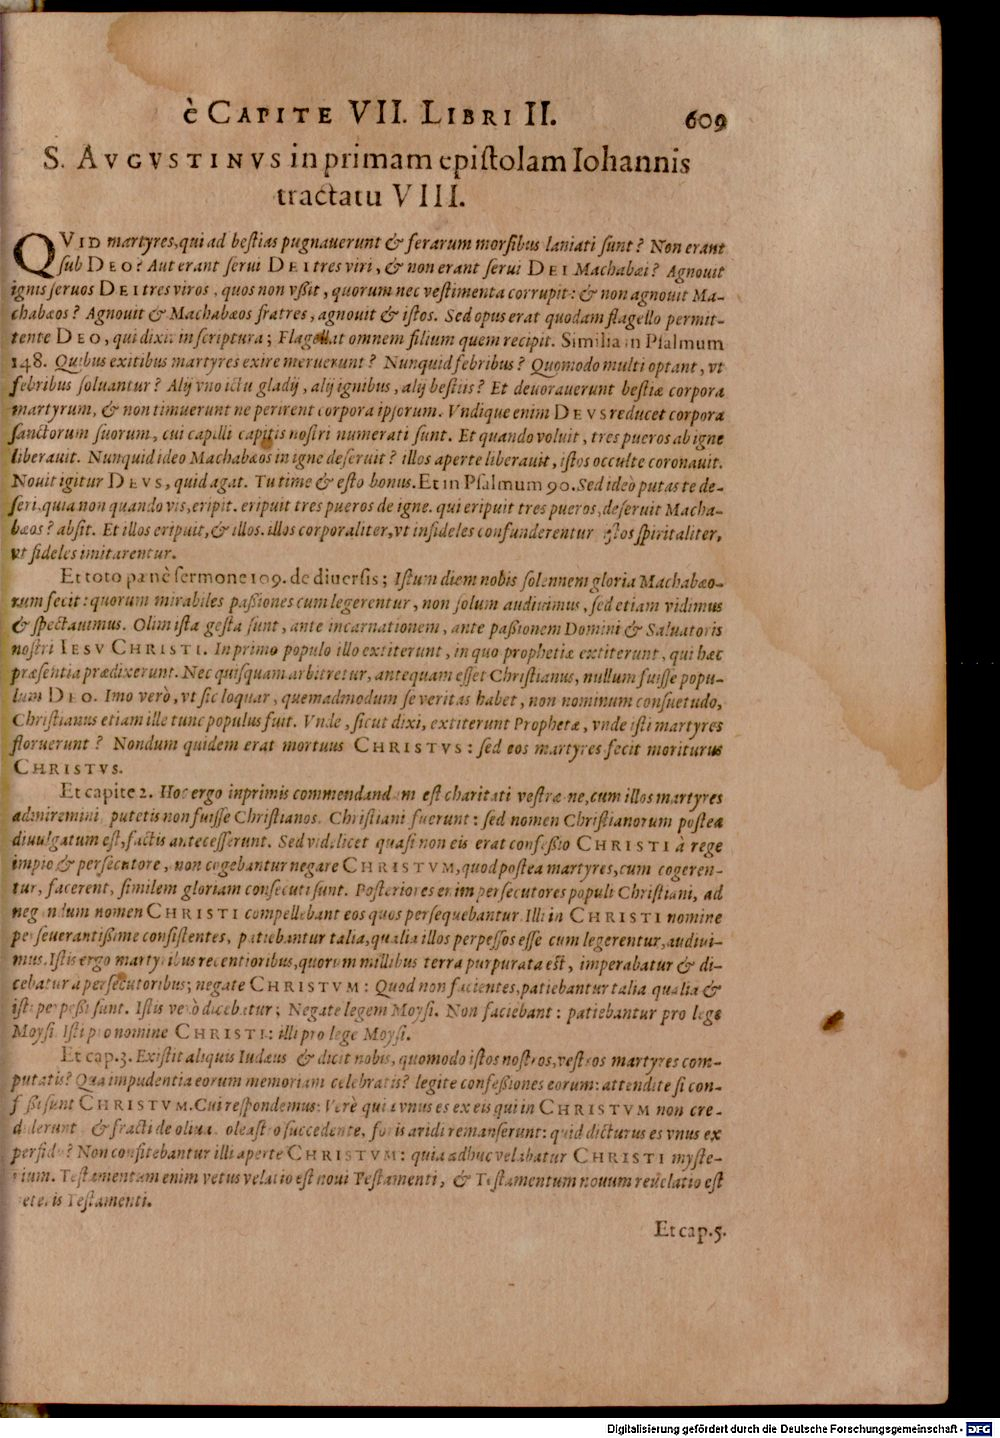 è CAPITE VII. LIBRI II. 609
S. AVGVSTINVS in primam epistolam Iohannis
tractatu VIII.
QVID martyres, qui ad bestias pugnauerunt & ferarum morsibus laniati sunt? Non erant
sub DEO? Aut erant serui DEI tres viri, & non erant serui DEI Machabæi? Agnouit
ignis seruos DEI tres viros, quos non vßit, quorum nec vestimenta corrupit: & non agnouit Ma-
chabæos? Agnouit & Machabæos fratres, agnouit & istos. Sed opus erat quodam flagello permit-
tente DEO, qui dixit in scriptura; Flagellat omnem filium quem recipit. Similia in Psalmum
148. Quibus exitibus martyres exire meruerunt? Nunquid febribus? Quomodo multi optant, vt
febribus soluantur? Alij vno ictu gladij, alij ignibus, alij bestiis? Et deuorauerunt bestiæ corpora
martyrum, & non timuerunt ne perirent corpora ipsorum. Vndique enim DEVS reducet corpora
sanctorum suorum, cui capilli capitis nostri numerati sunt. Et quando voluit, tres pueros ab igne
liberauit. Nunquid ideo Machabæos in igne deseruit? illos aperte liberauit, istos occulte coronauit.
Nouit igitur DEVS, quid agat. Tu time & esto bonus. Et in Psalmum 90. Sed ideò putas te de-
seri, quia non quando vis, eripit. eripuit tres pueros de igne. qui eripuit tres pueros, deseruit Macha-
bæos? absit. Et illos eripuit, & illos. illos corporaliter, vt infideles confunderentur istos spiritaliter,
vt fideles imitarentur.
Et toto pænè sermone 109. de diuersis; Istum diem nobis solennem gloria Machabæo-
rum fecit: quorum mirabiles paßiones cum legerentur, non solum audiuimus, sed etiam vidimus
& spectauimus. Olim ista gesta sunt, ante incarnationem, ante paßionem Domini & Saluatoris
nostri IESV CHRISTI. In primo populo illo extiterunt, in quo prophetiæ extiterunt, qui hæc
præsentia prædixerunt. Nec quisquam arbitretur, antequam esset Christianus, nullum fuisse popu-
lum DEO. Imo verò, vt sic loquar, quemadmodum se veritas habet, non nominum consuetudo,
Christianus etiam ille tunc populus fuit. Vnde, sicut dixi, extiterunt Prophetæ, vnde isti martyres
floruerunt? Nondum quidem erat mortuus CHRISTVS: sed eos martyres fecit moriturus
CHRISTVS.
Et capite 2. Hoc ergo inprimis commendandum est charitati vestræ ne, cum illos martyres
admiremini putetis non fuisse Christianos. Christiani fuerunt: sed nomen Christianorum postea
diuulgatum est, factis antecesserunt. Sed videlicet quasi non eis erat confeßio CHRISTI à rege
impio & persecutore, non cogebantur negare CHRISTVM, quod postea martyres, cum cogeren-
tur, facerent, similem gloriam consecuti sunt. Posteriores enim persecutores populi Christiani, ad
negandum nomen CHRISTI compellebant eos quos persequebantur. Illi in CHRISTI nomine
perseuerantißime consistentes, patiebantur talia, qualia illos perpessos esse cum legerentur, audiui-
mus. Istis ergo martyribus recentioribus, quorum millibus terra purpurata est, imperabatur & di-
cebatur à persecutoribus; negate CHRISTVM: Quod non facientes, patiebantur talia qualia &
isti perpeßi sunt. Istis verò dicebatur; Negate legem Moysi. Non faciebant: patiebantur pro lege
Moysi. Isti pro nomine CHRISTI: illi pro lege Moysi.
Et cap. 3. Existit aliquis Iudæus & dicit nobis, quomodo istos nostros, vestros martyres com-
putatis? Qua impudentia eorum memoriam celebratis? legite confeßiones eorum: attendite si con-
feßi sunt CHRISTVM. Cui respondemus: Verè qui vnus es ex eis qui in CHRISTVM non cre-
diderunt & fracti de oliua oleastro succedente, foris aridi remanserunt: quid dicturus es vnus ex
perfidis? Non confitebantur illi aperte CHRISTVM: quia adhuc velabatur CHRISTI myste-
rium. Testamentum enim vetus velatio est noui Testamenti, & Testamentum nouum reuelatio est
veteris Testamenti.
Et cap. 5.
Digitalisierung gefördert durch die Deutsche Forschungsgemeinschaft - DFG